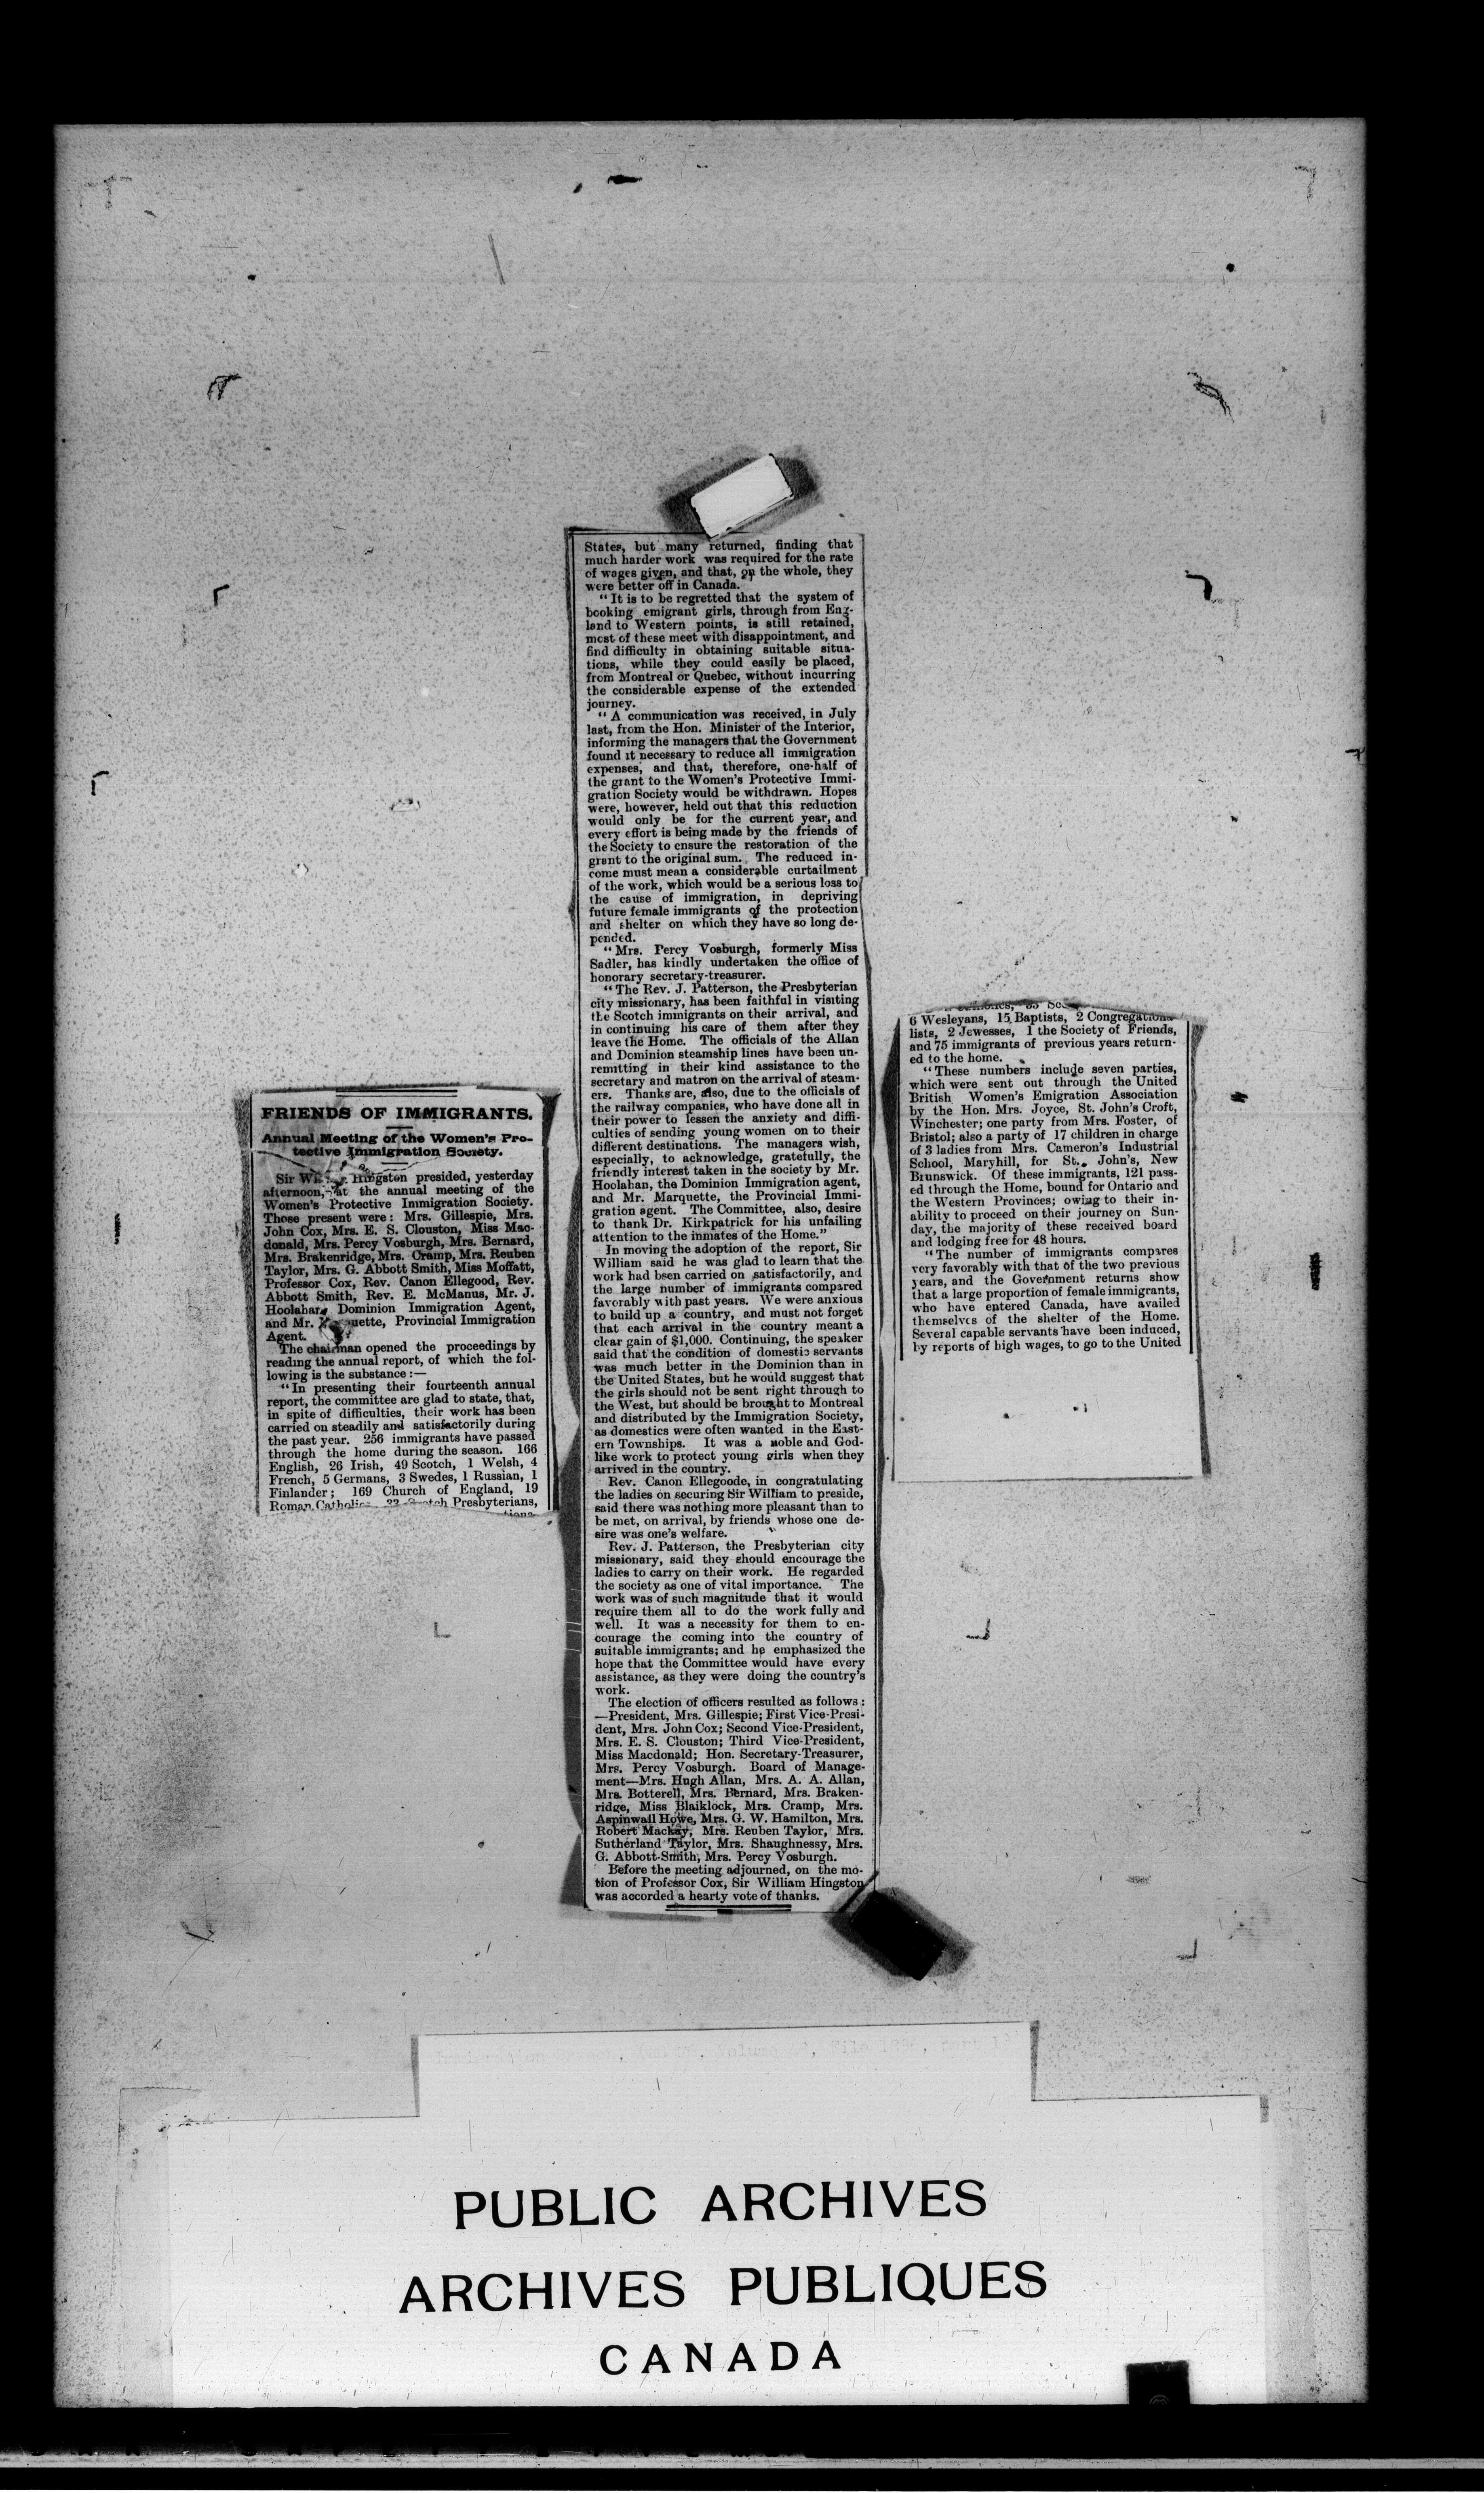 FRIENDS OF IMMIGRANTS.
Annual Meeting of the Women's Pro-
tective Immigration Society.
Sir Hingston presided, yesterday
afternoon, at the annual meeting of the
Women's Protective Immigration Society.
Those present were: Mrs. Gillespie, Mrs.
John Cox, Mrs. E. S. Clouston, Miss Mac-
donald, Mrs. Percy Vosburgh, Mrs. Bernard,
Mrs. Brakenridge, Mrs. Cramp, Mrs. Reuben
Taylor, Mrs. G. Abbott Smith, Miss Moffatt,
Professor Cox, Rev. Canon Ellegood, Rev.
Abbott Smith, Rev. E. McManus, Mr. J.
Hoolahan, Dominion Immigration Agent,
and Mr. Provincial Immigration
Agent.
The chairman opened the proceedings by
reading the annual report, of which the fol-
lowing is the substance :—
"In presenting their fourteenth annual
report, the committee are glad to state, that,
in spite of difficulties, their work has been
carried on steadily and satisfactorily during
the past year. 256 immigrants have passed
through the home during the season. 166
English, 26 Irish, 49 Scotch, 1 Welsh, 4
French, 5 Germans, 3 Swedes, 1 Russian, 1
Finlander; 169 Church of England, 19
Roman Presbyterians,
6 Wesleyans, 15 Baptists, 2 Congrega-
lists, 2 Jewesses, 1 the Society of Friends,
and 75 immigrants of previous years return-
ed to the home.
"These numbers include seven parties,
which were sent out through the United
British Women's Emigration Association
by the Hon. Mrs. Joyce, St. John's Croft,
Winchester; one party from Mrs. Foster, of
Bristol; also a party of 17 children in charge
of 3 ladies from Mrs. Cameron's Industrial
School, Maryhill, for St. John's, New
Brunswick. Of these immigrants, 121 pass-
ed through the Home, bound for Ontario and
the Western Provinces; owing to their in-
ability to proceed on their journey on Sun-
day, the majority of these received board
and lodging free for 48 hours.
"The number of immigrants compares
very favorably with that of the two previous
years, and the Government returns show
that a large proportion of female immigrants,
who have entered Canada, have availed
themselves of the shelter of the Home.
Several capable servants have been induced,
by reports of high wages, to go to the United
States, but many returned, finding that
much harder work was required for the rate
of wages given, and that, on the whole, they
were better off in Canada.
"It is to be regretted that the system of
booking emigrant girls, through from Eng-
land to Western points, is still retained,
most of these meet with disappointment, and
find difficulty in obtaining suitable situa-
tions, while they could easily be placed,
from Montreal or Quebec, without incurring
the considerable expense of the extended
journey.
"A communication was received, in July
last, from the Hon. Minister of the Interior,
informing the managers that the Government
found it necessary to reduce all immigration
expenses, and that, therefore, one-half of
the grant to the Women's Protective Immi-
gration Society would be withdrawn. Hopes
were, however, held out that this reduction
would only be for the current year, and
every effort is being made by the friends of
the Society to ensure the restoration of the
grant to the original sum. The reduced in-
come must mean a considerable curtailment
of the work, which would be a serious loss to
the cause of immigration, in depriving
future female immigrants of the protection
and shelter on which they have so long de-
pended.
"Mrs. Percy Vosburgh, formerly Miss
Sadler, has kindly undertaken the office of
honorary secretary-treasurer.
"The Rev. J. Patterson, the Presbyterian
city missionary, has been faithful in visiting
the Scotch immigrants on their arrival, and
in continuing his care of them after they
leave the Home. The officials of the Allan
and Dominion steamship lines have been un-
remitting in their kind assistance to the
secretary and matron on the arrival of steam-
ers. Thanks are, also, due to the officials of
the railway companies, who have done all in
their power to lessen the anxiety and diffi-
culties of sending young women on to their
different destinations. The managers wish,
especially, to acknowledge, gratefully, the
friendly interest taken in the society by Mr.
Hoolahan, the Dominion Immigration agent,
and Mr. Marquette, the Provincial Immi-
gration agent. The Committee, also, desire
to thank Dr. Kirkpatrick for his unfailing
attention to the inmates of the Home."
In moving the adoption of the report, Sir
William said he was glad to learn that the
work had been carried on satisfactorily, and
the large number of immigrants compared
favorably with past years. We were anxious
to build up a country, and must not forget
that each arrival in the country meant a
clear gain of $1,000. Continuing, the speaker
said that the condition of domestic servants
was much better in the Dominion than in
the United States, but he would suggest that
the girls should not be sent right through to
the West, but should be brought to Montreal
and distributed by the Immigration Society,
as domestics were often wanted in the East-
ern Townships. It was a noble and God-
like work to protect young girls when they
arrived in the country.
Rev. Canon Ellegoode, in congratulating
the ladies on securing Sir William to preside,
said there was nothing more pleasant than to
be met, on arrival, by friends whose one de-
sire was one's welfare.
Rev. J. Patterson, the Presbyterian city
missionary, said they should encourage the
ladies to carry on their work. He regarded
the society as one of vital importance. The
work was of such magnitude that it would
require them all to do the work fully and
well. It was a necessity for them to en-
courage the coming into the country of
suitable immigrants; and he emphasized the
hope that the Committee would have every
assistance, as they were doing the country's
work.
The election of officers resulted as follows :
—President, Mrs. Gillespie; First Vice-Presi-
dent, Mrs. John Cox; Second Vice-President,
Mrs. E. S. Clouston; Third Vice-President,
Miss Macdonald; Hon. Secretary-Treasurer,
Mrs. Percy Vosburgh. Board of Manage-
ment—Mrs. Hugh Allan, Mrs. A. A. Allan,
Mrs. Botterell, Mrs. Bernard, Mrs. Braken-
ridge, Miss Blaiklock, Mrs. Cramp, Mrs.
Aspinwall Howe, Mrs. G. W. Hamilton, Mrs.
Robert Mackay, Mrs. Reuben Taylor, Mrs.
Sutherland Taylor, Mrs. Shaughnessy, Mrs.
G. Abbott-Smith, Mrs. Percy Vosburgh.
Before the meeting adjourned, on the mo-
tion of Professor Cox, Sir William Hingston
was accorded a hearty vote of thanks.
PUBLIC ARCHIVES
ARCHIVES PUBLIQUES
CANADA